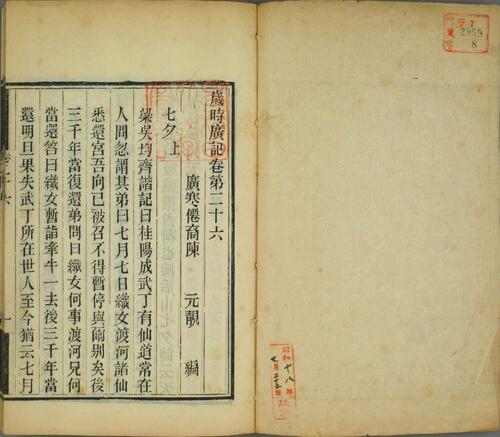 歲時廣記卷第二十六
廣寒僊裔陳 元靚 編
七夕上
梁吳均齊諧記曰桂陽成武丁有仙道常在
人間忽謂其弟曰七月七日織女渡河諸仙
悉還宮吾向已被召不得暫停與爾别矣後
三千年當復還弟問曰織女何事渡河兄何
當還答曰織女暫詣牽牛一去後三千年當
還明旦果失武丁所在世人至今猶云七月
2859
8
昭和十八年